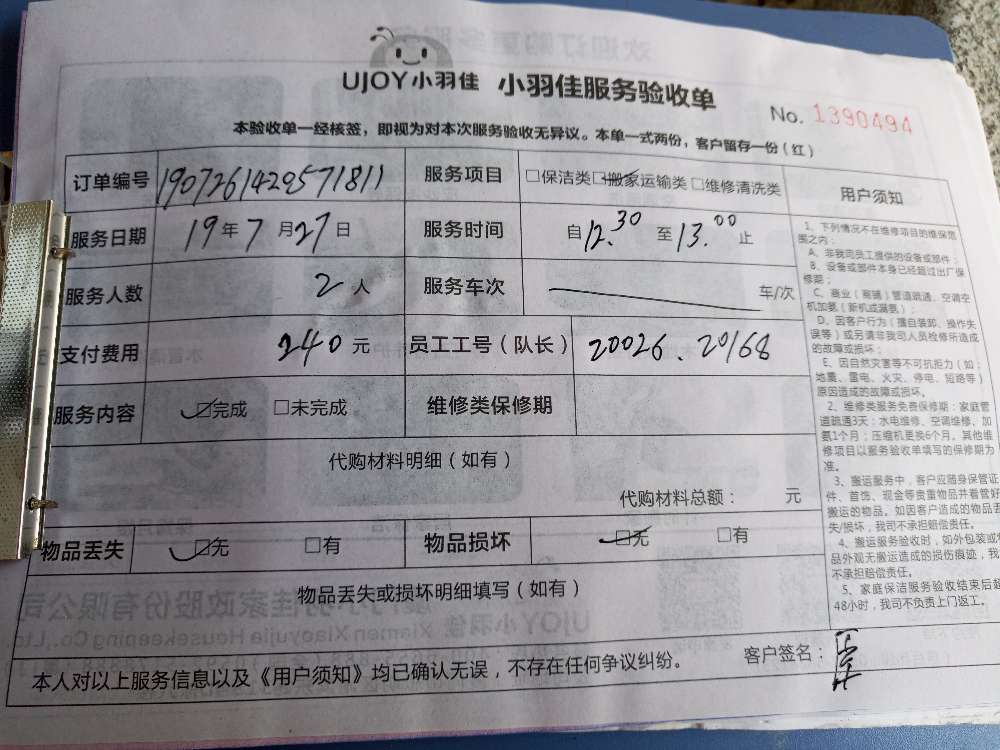 UJOY小羽佳 小羽佳服务验收单
No. 1390494
本验收单一经核签，即视为对本次服务验收无异议。本单一式两份，客户留存一份（红）
订单编号 1907261429571811 服务项目 □保洁类 □搬家运输类 □维修清洗类
服务日期 19年7月27日 服务时间 自12.30至13.00止
服务人数 2人 服务车次 车/次
支付费用 240元 员工工号（队长） 20026.20168
服务内容 □完成 □未完成 维修类保修期
代购材料明细（如有）
代购材料总额： 元
物品丢失 □无 □有 物品损坏 □无 □有
物品丢失或损坏明细填写（如有）
本人对以上服务信息以及《用户须知》均已确认无误，不存在任何争议纠纷。
客户签名：
用户须知
1、下列情况不在维修项目的维保范
围之内：
A、非我司员工提供的设备或部件；
B、设备或部件本身已经超过出厂保
修期；
C、商业（商铺）管道疏通、空调空
机加氨（新机或漏氨）；
D、因客户行为（擅自装卸、操作失
误等）或另请非我司人员检修所造成
的故障或损坏；
E、因自然灾害等不可抗力（如：
地震、雷电、火灾、停电、短路等）
原因造成的故障或损坏。
2、维修类服务免费保修期：家庭管
道疏通3天；水电维修、空调维修、加
氨1个月；压缩机更换6个月。其他维
修项目以服务验收单填写的保修期为
准。
3、搬运服务中，客户应随身保管证
件、首饰、现金等贵重物品并看管好
搬运的物品。如因客户造成的物品丢
失/损坏，我司不承担赔偿责任。
4、搬运服务验收时，如外包装或
品外观无搬运造成的损伤痕迹，我
不承担赔偿责任。
5、家庭保洁服务验收结束后超
48小时，我司不负责上门返工。